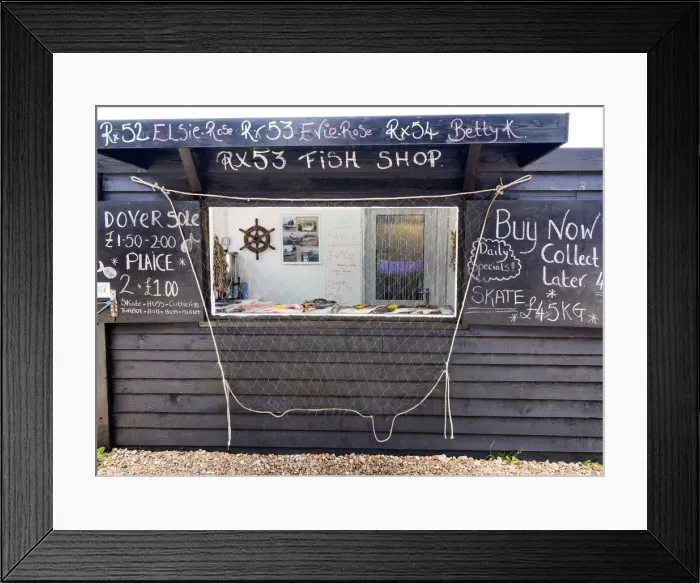 Rx52 ELSie-Rose Rx53 EVie-Rose Rx54 Betty K.
RX53 FiSH SHOP
DOVER SOLE
£1·50-200
* PLAICE *
2·£1.00
SKate·HUSS·Cuttlefish
TURBOT·
Buy Now
Collect
Later 4
Daily
Specials!!
SKATE
* £4.5KG *